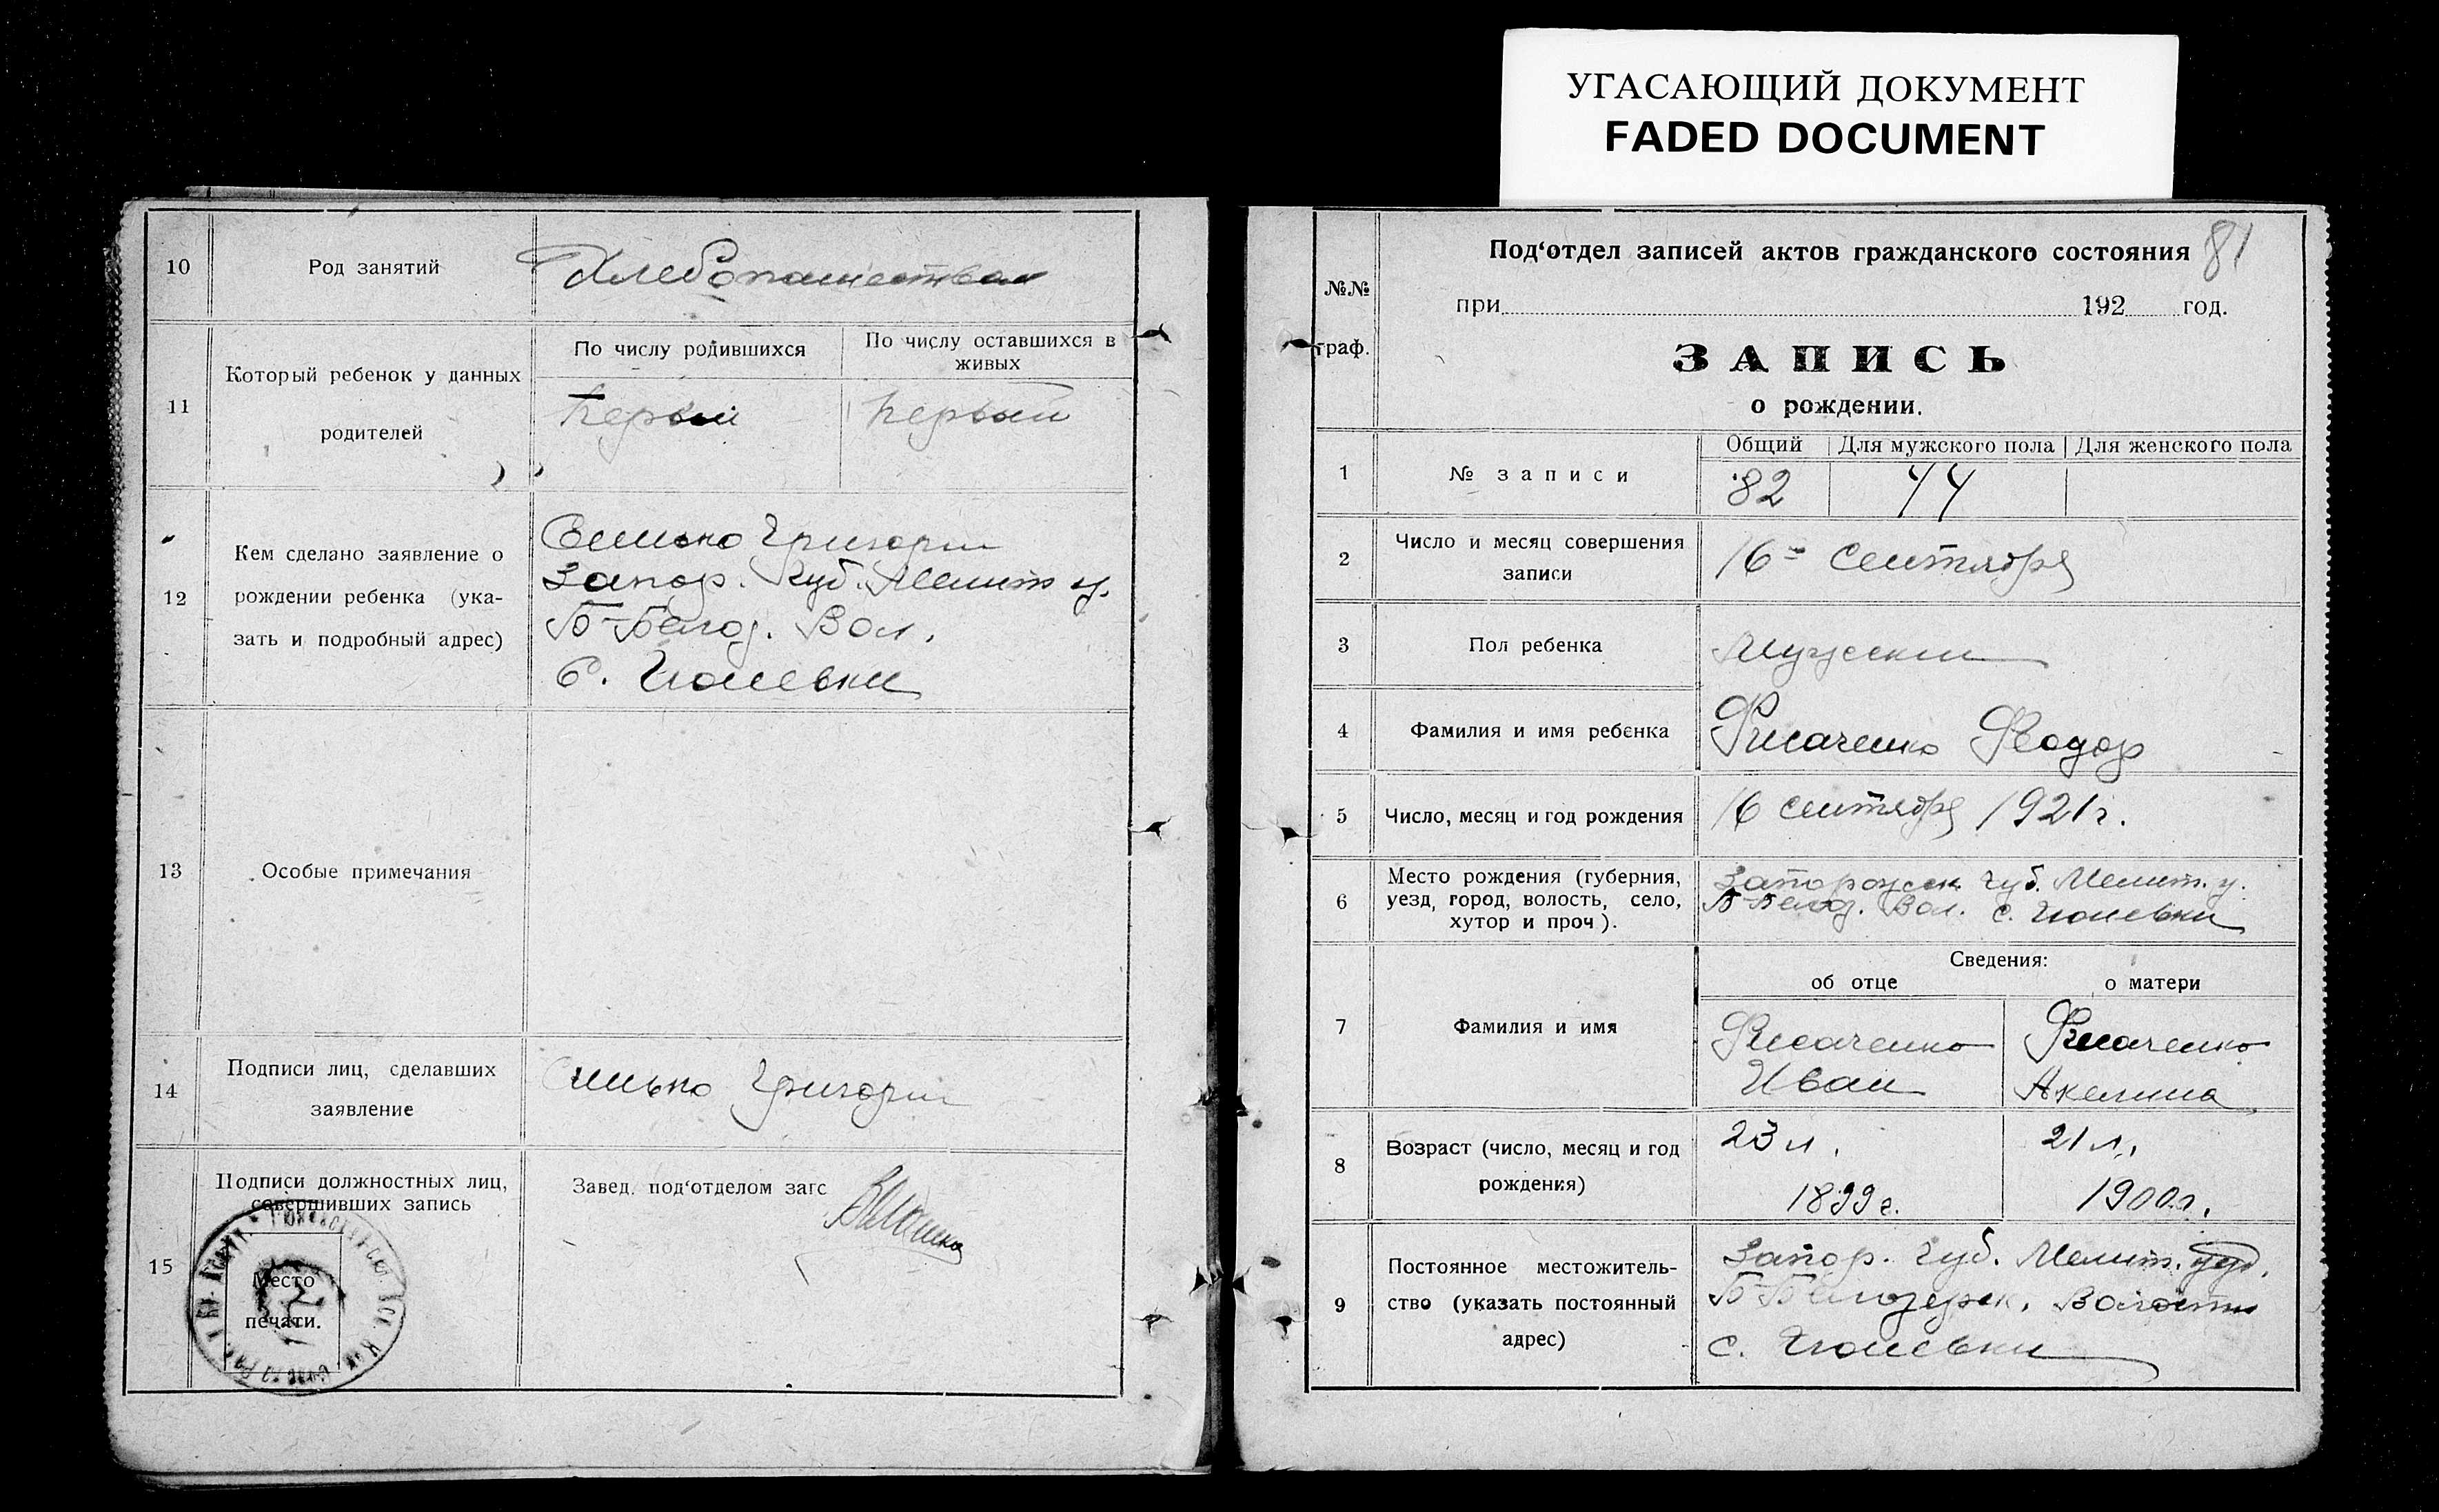 УГАСАЮЩИЙ ДОКУМЕНТ
FADED DOCUMENT
10
Род занятий
Хлебопашество
11
Который ребенок у данных
родителей
По числу родившихся
По числу оставшихся в
живых
Первый
Первый
12
Кем сделано заявление о
рождении ребенка (ука-
зать и подробный адрес)
Григорий
Запор. Губ. Мелит. у.
Б-Белоз. Вол.
С.
13
Особые примечания
14
Подписи лиц, сделавших
заявление
Григорий
15
Подписи должностных лиц,
совершивших запись
Место
печати.
Завед. под‘отделом загс
81
№№
граф.
Под‘отдел записей актов гражданского состояния
при 192 год.
ЗАПИСЬ
о рождении.
1
№ записи
Общий
Для мужского пола
Для женского пола
82
44
2
Число и месяц совершения
записи
16 = Сентября
3
Пол ребенка
Мужский
4
Фамилия и имя ребенка
Феодор
5
Число, месяц и год рождения
16 сентября 1921 г.
6
Место рождения (губерния,
уезд, город, волость, село,
хутор и проч).
Запорожск. Губ. Мелит. у.
Б-Белоз. Вол. с.
7
Фамилия и имя
Сведения:
об отце
о матери
Иван
Акелина
8
Возраст (число, месяц и год
рождения)
23 л.
1899 г.
21 л.
1900 г.
9
Постоянное местожитель-
ство (указать постоянный
адрес)
Запор. Губ. Мелит. уез.
Б-Белозерск. Волости
с.